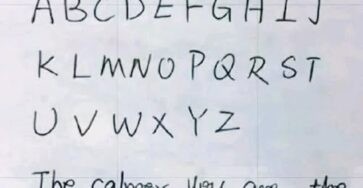 A B C D E F G H I J
K L M N O P Q R S T
U V W X Y Z
The calmer you are the